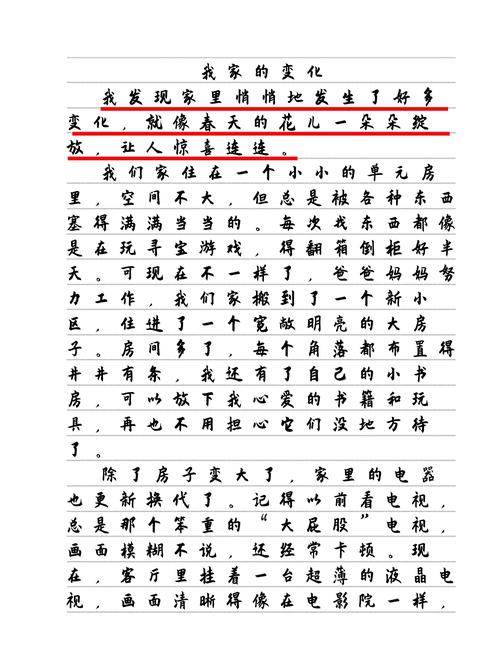 我家的变化
我发现家里悄悄地发生了好多
变化，就像春天的花儿一朵朵绽
放，让人惊喜连连。
我们家住在一个小小的单元房
里，空间不大，但总是被各种东西
塞得满满当当的。每次找东西都像
是在玩寻宝游戏，得翻箱倒柜好半
天。可现在不一样了，爸爸妈妈努
力工作，我们家搬到了一个新小
区，住进了一个宽敞明亮的大房
子。房间多了，每个角落都布置得
井井有条，我还有了自己的小书
房，可以放下我心爱的书籍和玩
具，再也不用担心它们没地方待
了。
除了房子变大了，家里的电器
也更新换代了。记得以前看电视，
总是那个笨重的“大屁股”电视，
画面模糊不说，还经常卡顿。现
在，客厅里挂着一台超薄的液晶电
视，画面清晰得像在电影院一样，